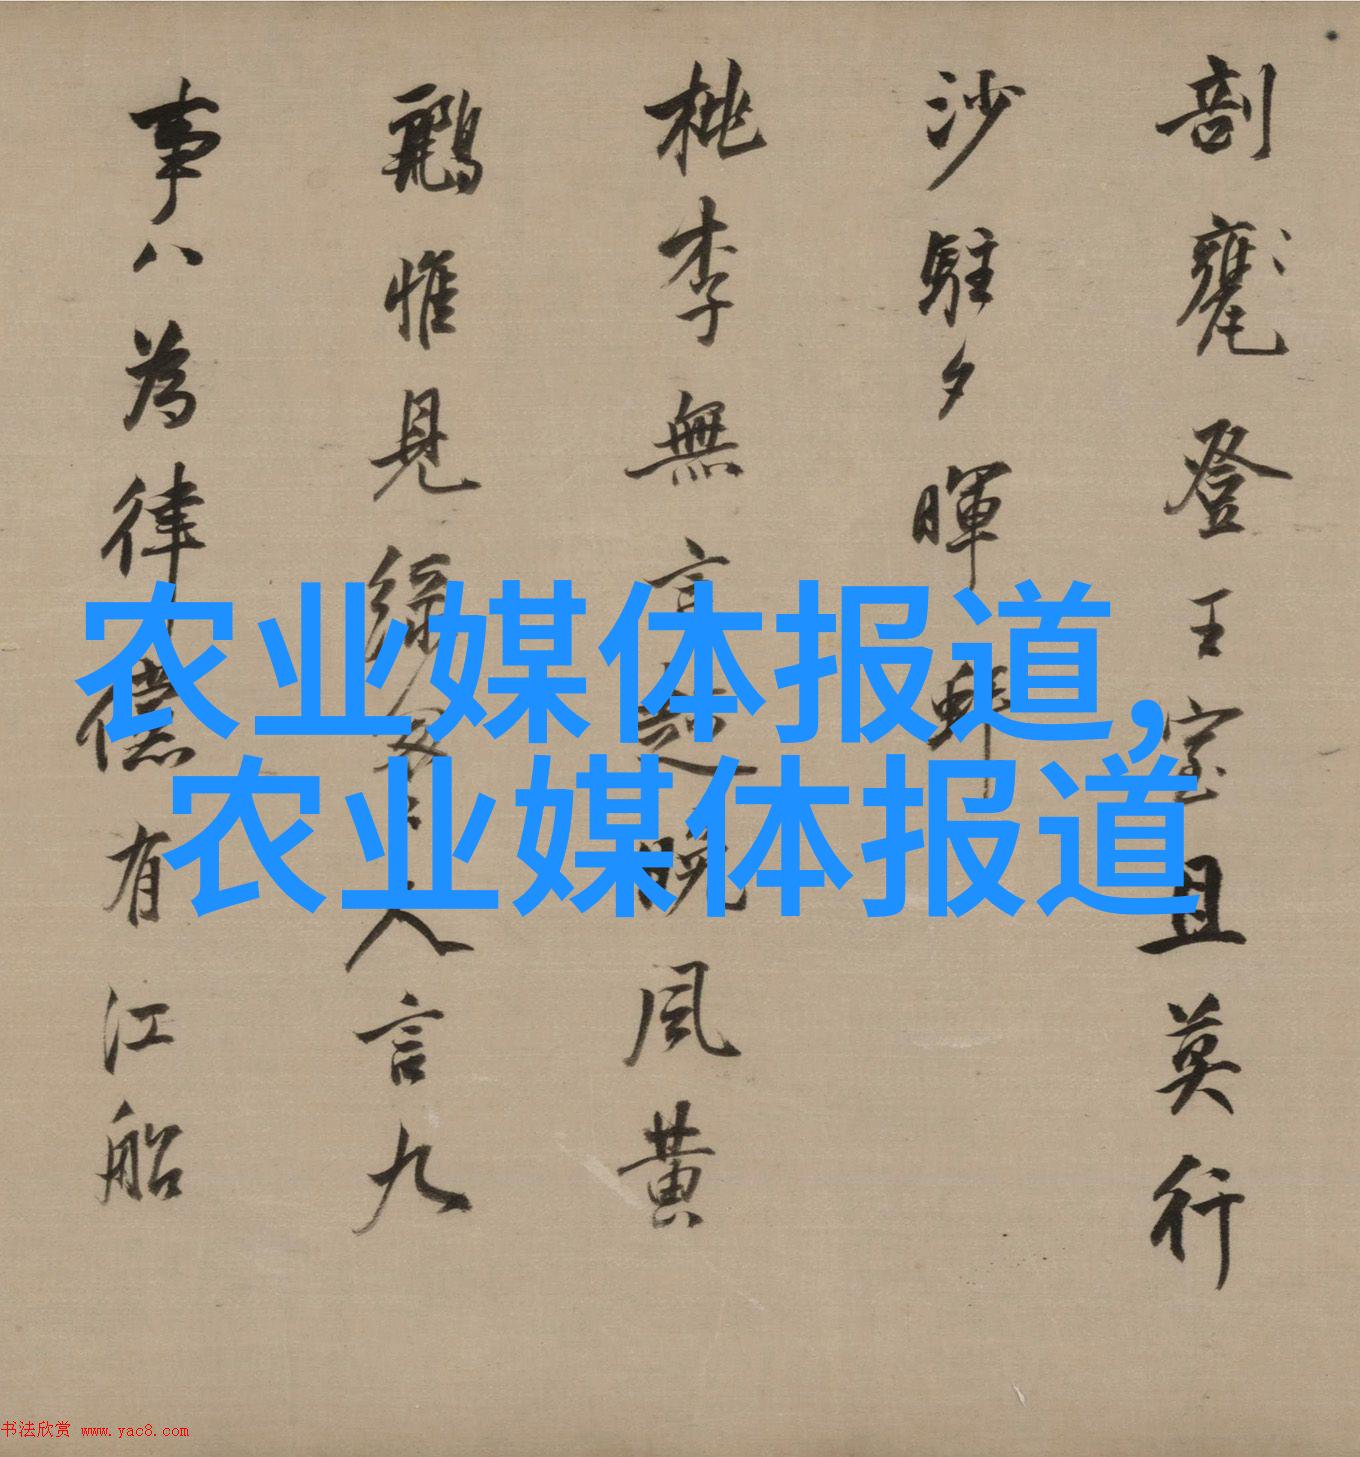 剖甕登王室且莫行
沙駐夕暉
桃李無言
風黄
鸝惟見
人言九
事八為律
有江船
农业媒体报道，
农业媒体报道
书法欣赏 www.yac8.com